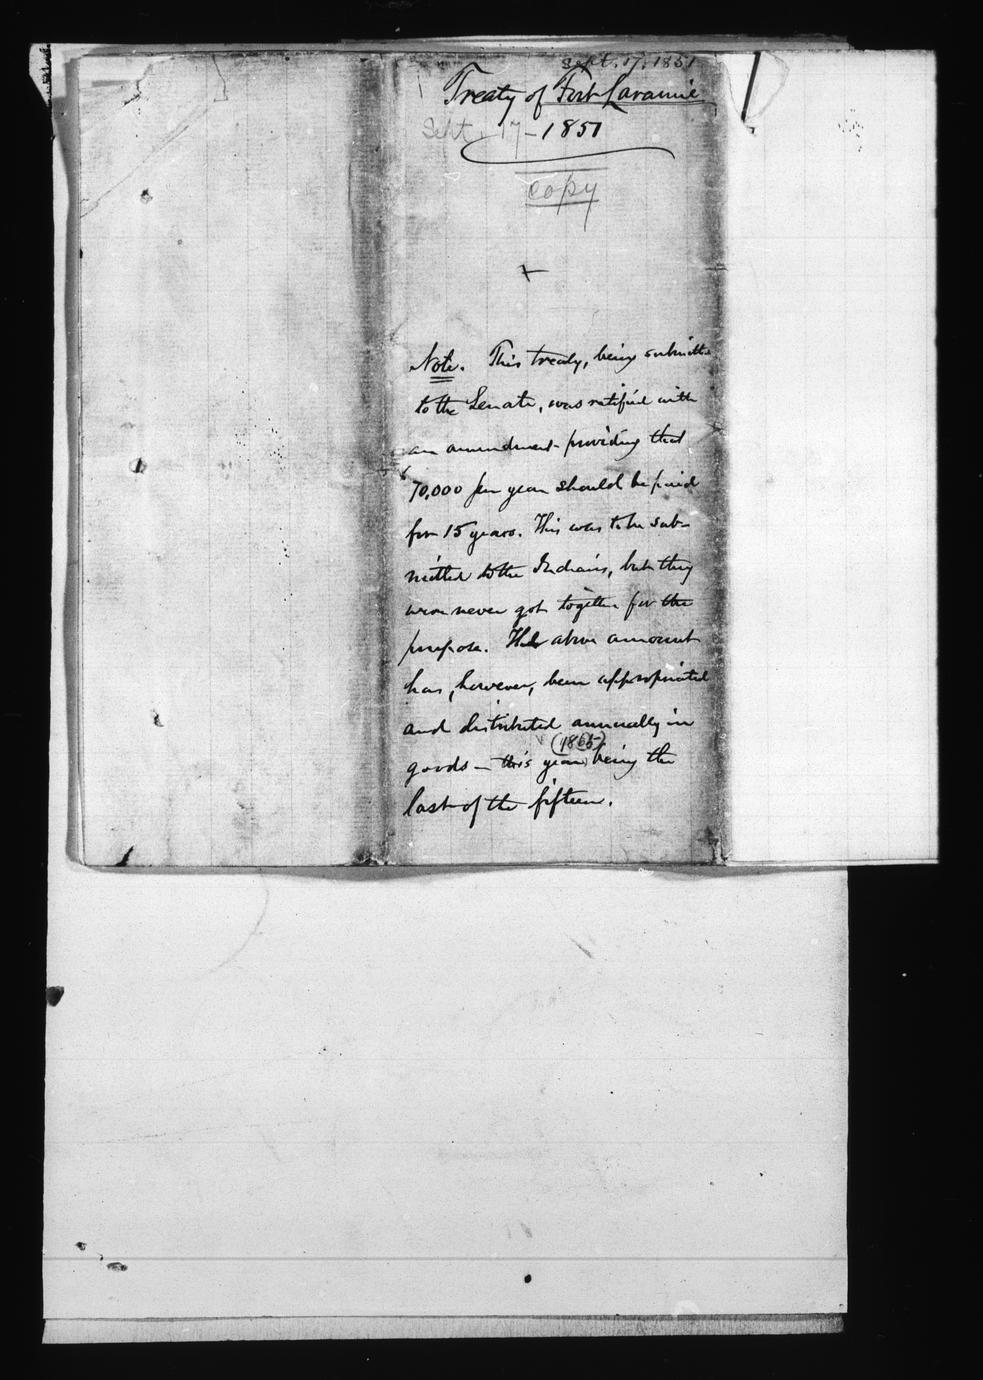 Sept. 17, 1851
Treaty of Fort Laramie
Sept. 17 - 1851
copy
Note. This treaty, being submitted
to the Senate, was ratified with
an amendment providing that
70,000 per year should be paid
for 15 years. This was to be sub-
mitted to the Indians, but they
were never got together for the
purpose. The above amount
has, however, been appropriated
and distributed annually in
(1865)
goods — this year being the
last of the fifteen.